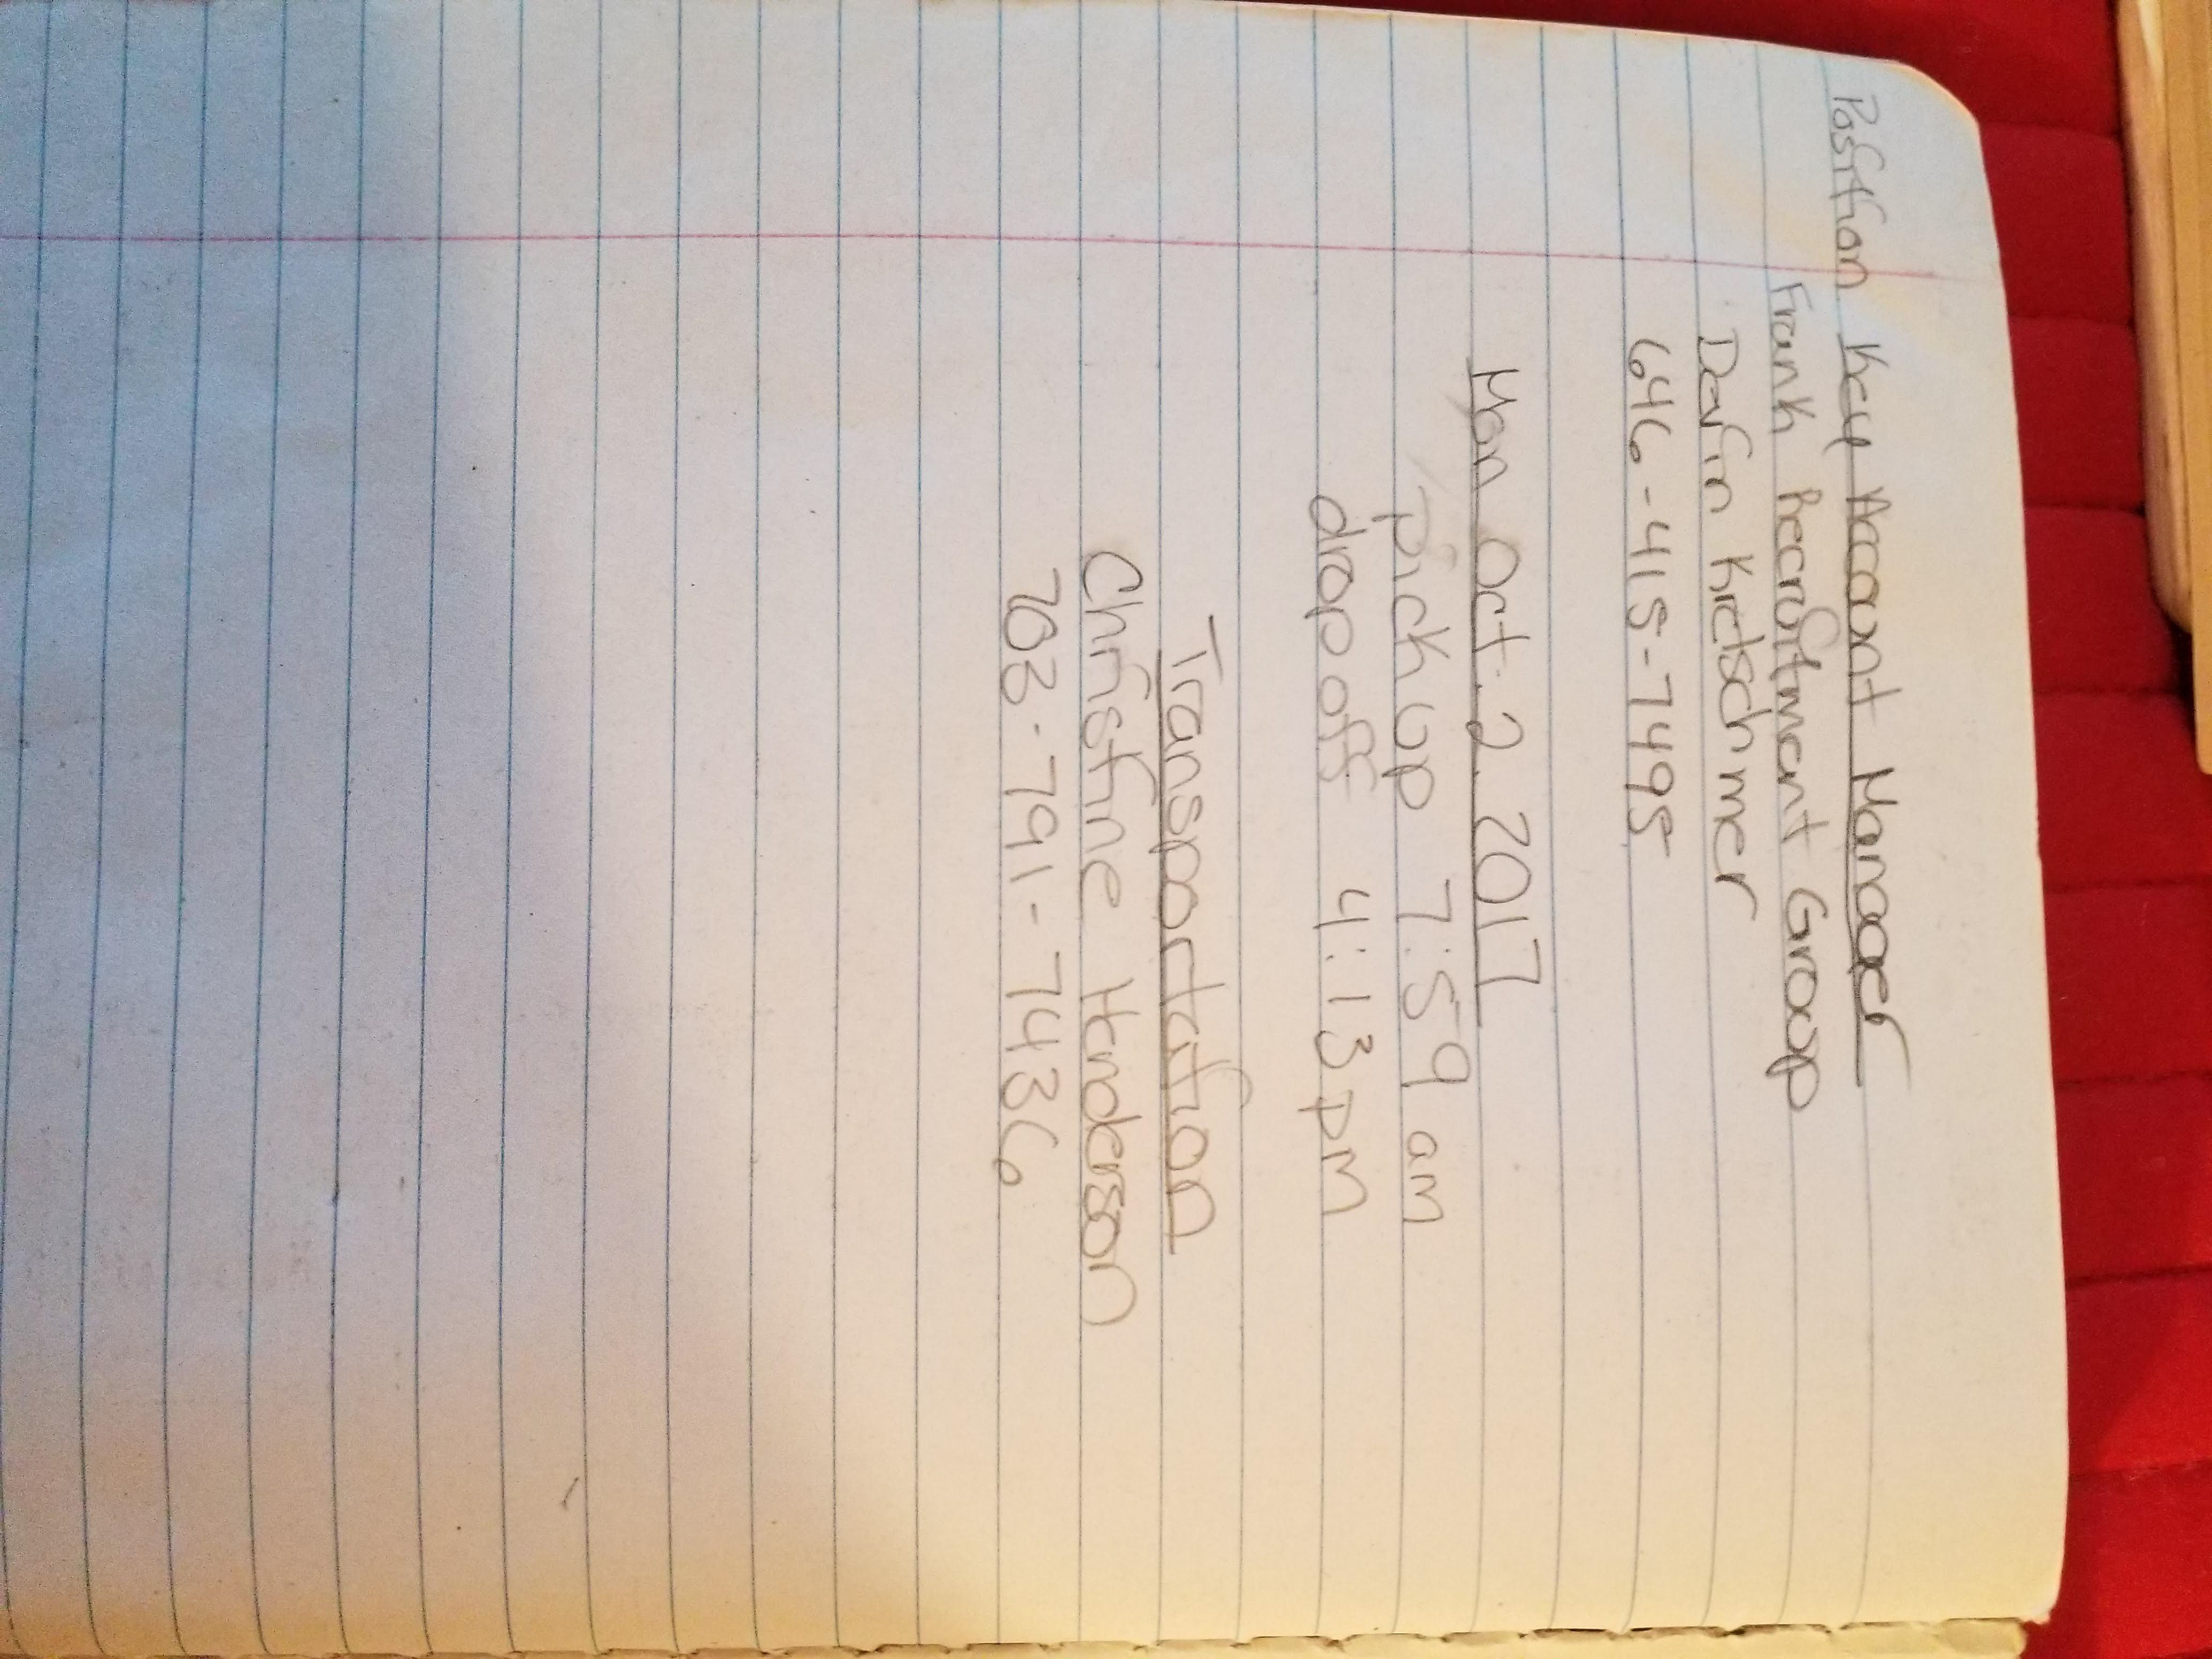 Position Key Account Manager
Frank Recruitment Group
Davin Kretschmer
646-415-7495
Mon Oct. 2. 2017
pick up 7:59 am
drop off 4:13 pm
Transportation
Christine Henderson
703-791-7436